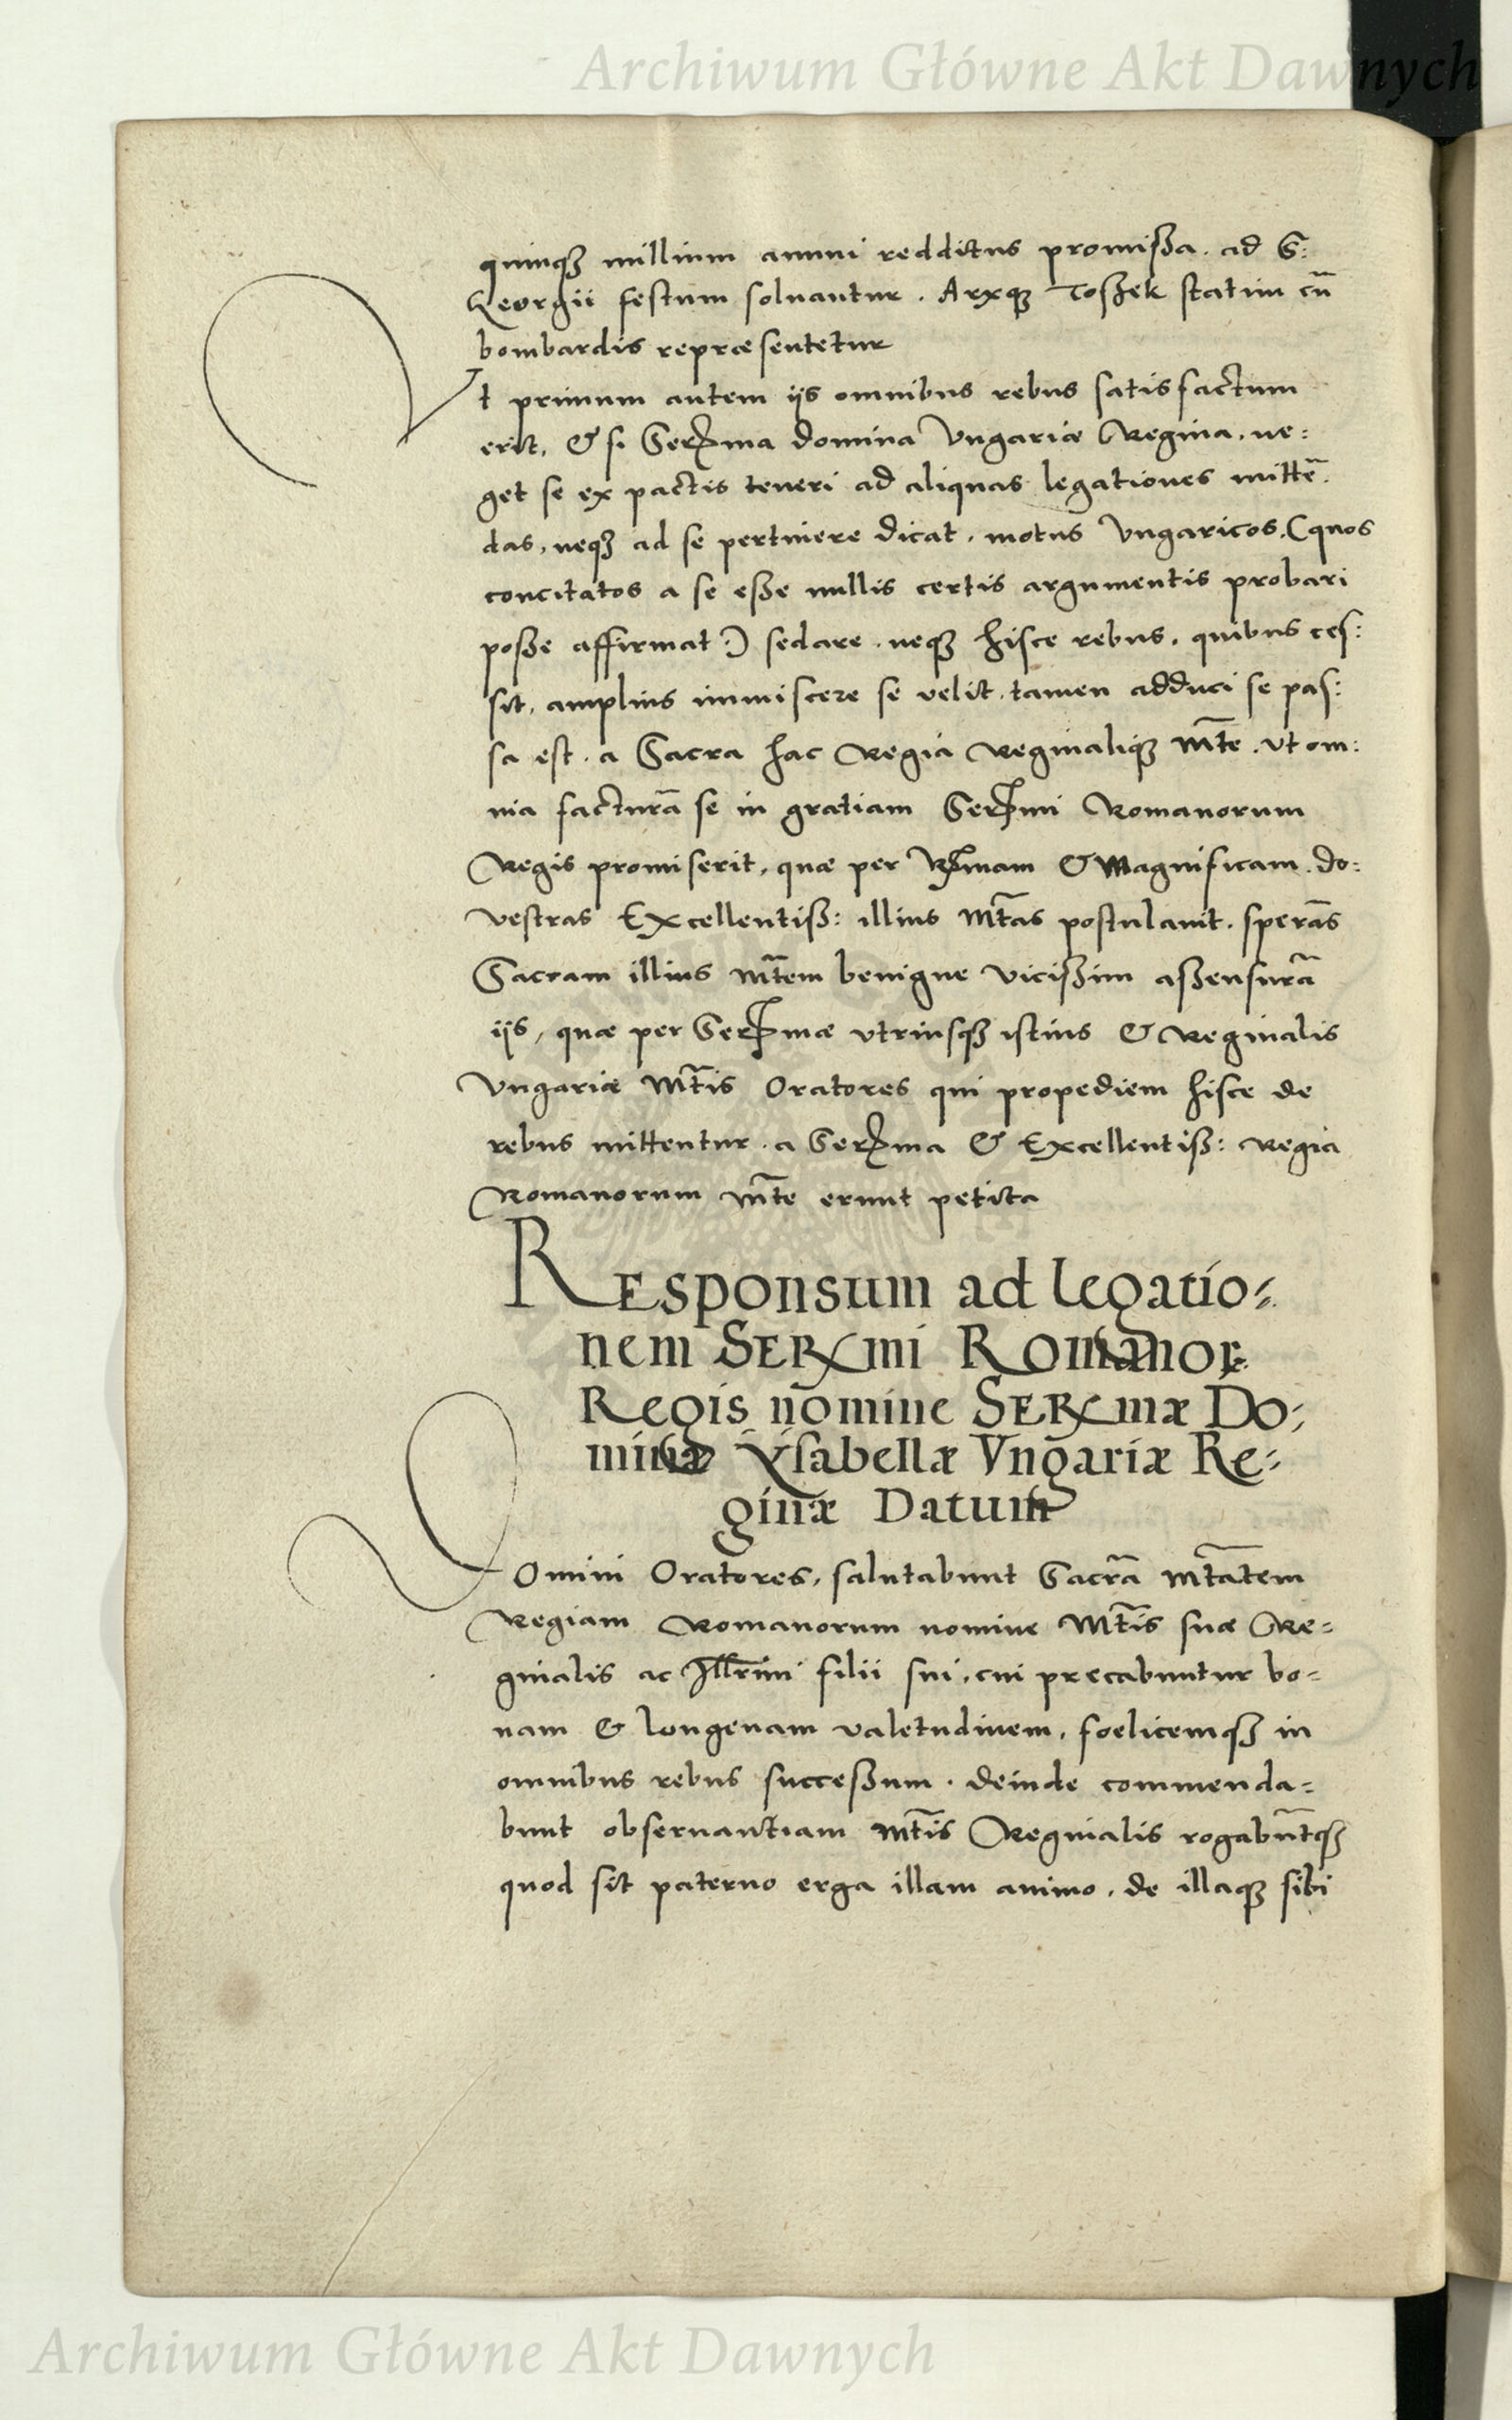 Archiwum Główne Akt Dawnych
quinqȝ millium annui redditus promissa. ad S:
Georgii festum soluantur. Arxqȝ Toszek statim cū
bombardis repræsentetur
Vt primum autem iis omnibus rebus satisfactum
erit, & si Serma domina Vngariæ Regina, ne:
get se ex pactis teneri ad aliquas legationes mittē:
das, neqȝ ad se pertinere dicat, motus Vngaricos, (quos
concitatos a se esse nullis certis argumentis probari
posse affirmat:) sedare, neqȝ hisce rebus, quibus ces:
sit, amplius immiscere se velit, tamen adduci se pas:
sa est, a Sacra hac Regia Reginaliqȝ Mte. vt om:
nia facturā se in gratiam Sermi Romanorum
Regis promiserit, quæ per Rmam & Magnificam. do:
vestras Excellentiss: illius Mtas postulauit, sperās
Sacram illius Mtem benigne vicissim assensurā
iis, quæ per Sermæ vtriusqȝ istius & Reginalis
Vngariæ Mtis Oratores qui propediem hisce de
rebus mittentur, a Serma & Excellentiss: Regia
Romanorum Mte erunt petita
Responsum ad legatio:
nem Sermi Romanoꝝ
Regis nomine Sermæ Do:
minæ Ysabellæ Vngariæ Re:
ginæ Datum
Domini Oratores, salutabunt Sacrā Mtatem
Regiam Romanorum nomine Mtis suæ Re=
ginalis ac Illrmi filii sui, cui precabuntur bo=
nam & longeuam valetudinem, foelicemqȝ in
omnibus rebus successum. deinde commenda=
bunt obseruantiam Mtis Reginalis rogabūtqȝ
quod sit paterno erga illam animo, de illaqȝ sibi
Archiwum Główne Akt Dawnych